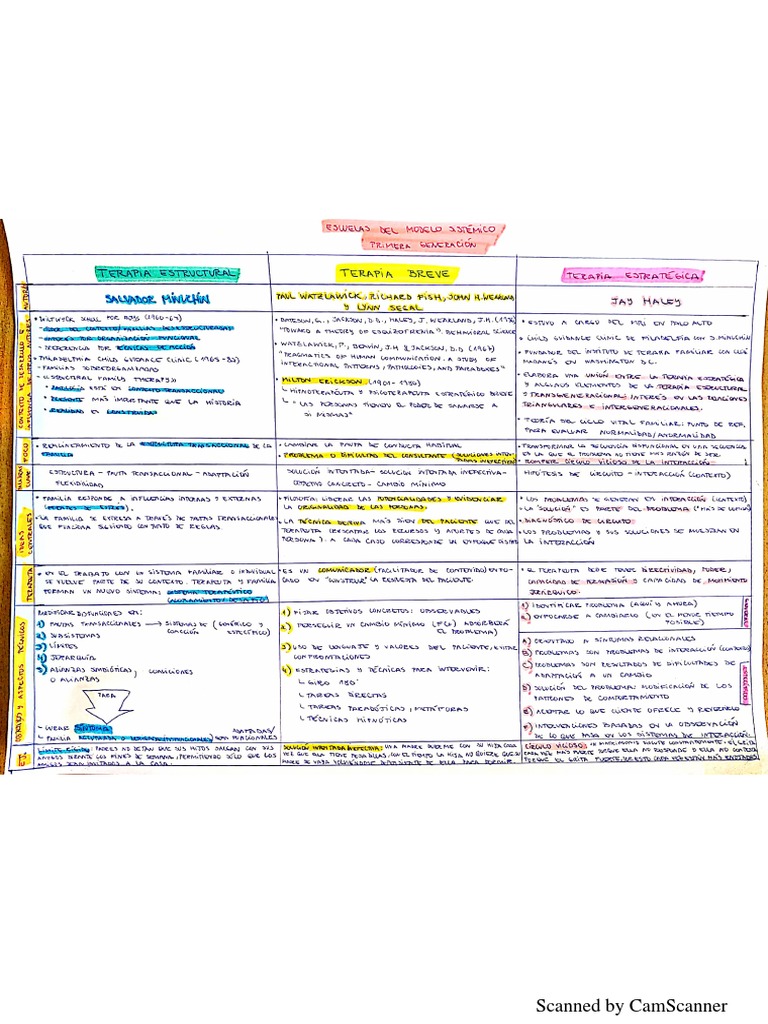 ESCUELAS DEL MODELO SISTÉMICO
PRIMERA GENERACIÓN
TERAPIA ESTRUCTURAL
TERAPIA BREVE
TERAPIA ESTRATÉGICA
SALVADOR MINUCHIN
PAUL WATZLAWICK, RICHARD FISH, JOHN H. WEAKLAND
Y LYNN SEGAL
JAY HALEY
• WILTWYCK SCHOOL FOR BOYS (1960-67)
- PREFERENCIA POR TÉCNICAS DE ACCIÓN
• PHILADELPHIA CHILD GUIDANCE CLINIC (1965-82)
- FAMILIAS SOBREORGANIZADAS
- «STRUCTURAL FAMILY THERAPY»
• FAMILIA ESTÁ EN CONTEXTO TRANSACCIONAL
• PRESENTE MÁS IMPORTANTE QUE LA HISTORIA
• REALIDAD ES CONSTRUIDA
• BATESON, G., JACKSON, D.D., HALEY, J. WEAKLAND, J.H. (1956)
"TOWARD A THEORY OF ESQUIZOFRENIA". BEHAVIORAL SCIENCE
• WATZLAWICK, P., BEAVIN, J.H & JACKSON, D.D (1967)
"PRAGMATICS OF HUMAN COMMUNICATION. A STUDY OF
INTERACTIONAL PATTERNS, PATHOLOGIES, AND PARADOXES"
• MILTON ERICKSON (1901-1980)
↳ HIPNOTERAPEUTA Y PSICOTERAPEUTA ESTRATÉGICO BREVE
↳ "LAS PERSONAS TIENEN EL PODER DE SANARSE A
SÍ MISMAS"
• ESTUVO A CARGO DEL MRI EN PALO ALTO
• CHILD GUIDANCE CLINIC DE FILADELFIA CON S. MINUCHIN
• FUNDADOR DEL INSTITUTO DE TERAPIA FAMILIAR CON CLOÉ
MADANÉS EN WASHINGTON D.C.
• ELABORA UNA UNIÓN ENTRE LA TERAPIA ESTRATÉGICA
Y ALGUNOS ELEMENTOS DE LA TERAPIA ESTRUCTURAL
Y TRANSGENERACIONAL: INTERÉS EN LAS RELACIONES
TRIANGULARES E INTERGENERACIONALES.
• TEORÍA DEL CICLO VITAL FAMILIAR: PUNTO DE REF.
PARA EVALUAR NORMALIDAD/ANORMALIDAD
FOCO
• REALINEAMIENTO DE LA ESTRUCTURA TRANSACCIONAL DE LA
FAMILIA
• CAMBIAR LA PAUTA DE CONDUCTA HABITUAL
• PROBLEMA O DIFICULTAD DEL CONSULTANTE
• ROMPER CÍRCULO VICIOSO DE LA INTERACCIÓN
ESTRUCTURA - PAUTA TRANSACCIONAL - ADAPTACIÓN
FLEXIBILIDAD
SOLUCIÓN INTENTADA - SOLUCIÓN INTENTADA INEFECTIVA -
OBJETIVO CONCRETO - CAMBIO MÍNIMO
HIPÓTESIS DE CIRCUITO - INTERACCIÓN (CONTEXTO)
IDEAS CENTRALES
• FAMILIA RESPONDE A INFLUENCIAS INTERNAS Y EXTERNAS
• LA FAMILIA SE EXPRESA A TRAVÉS DE PAUTAS TRANSACCIONALES
QUE FUNCIONA SIGUIENDO CONJUNTO DE REGLAS.
• FILOSOFÍA: LIBERAR LAS POTENCIALIDADES Y EVIDENCIAR
LA ORIGINALIDAD DE LAS PERSONAS.
• LA TÉCNICA DERIVA MÁS BIEN DEL PACIENTE QUE DEL
TERAPEUTA (RESCATAR LOS RECURSOS Y APORTES DE CADA
PERSONA). A CADA CASO CORRESPONDE UN ENFOQUE DISTINTO
• LOS PROBLEMAS SE GENERAN EN INTERACCIÓN (CONTEXTO)
• LA "SOLUCIÓN" ES PARTE DEL PROBLEMA ("MÁS DE LO MISMO")
• DIAGNÓSTICO DE CIRCUITO
• LOS PROBLEMAS Y SUS SOLUCIONES SE MUESTRAN EN
LA INTERACCIÓN
TERAPEUTA
• EN EL TRABAJO CON UN SISTEMA FAMILIAR O INDIVIDUAL
SE VUELVE PARTE DE SU CONTEXTO. TERAPEUTA Y FAMILIA
FORMAN UN NUEVO SISTEMA: SISTEMA TERAPÉUTICO
• ES UN COMUNICADOR (FACILITADOR DE CONTENIDO) ENFO-
CADO EN "CONSTRUIR" LA RESPUESTA DEL PACIENTE.
• EL TERAPEUTA DEBE TENER DIRECTIVIDAD, PODER,
CAPACIDAD DE AFIRMACIÓN Y CAPACIDAD DE MOVIMIENTO
JERÁRQUICO.
OBJETIVOS Y ASPECTOS TÉCNICOS
MODIFICAR DISFUNCIONES EN:
1) PAUTAS TRANSACCIONALES → SISTEMAS DE COACCIÓN (GENÉRICO Y ESPECÍFICO)
2) SUBSISTEMAS
3) LÍMITES
4) JERARQUÍA
5) ALIANZAS SIMBIÓTICAS, COALICIONES
O ALIANZAS
PARA
SÍNTOMA
1) FIJAR OBJETIVOS CONCRETOS: OBSERVABLES
2) PERSEGUIR UN CAMBIO MÍNIMO
3) USO DE LENGUAJE Y VALORES DEL PACIENTE, EVITAR
CONFRONTACIONES
4) ESTRATEGIAS Y TÉCNICAS PARA INTERVENIR:
↳ GIRO 180°
↳ TAREAS DIRECTAS
↳ TAREAS PARADÓJICAS / METÁFORAS
↳ TÉCNICAS HIPNÓTICAS
1) IDENTIFICAR PROBLEMA (AQUÍ Y AHORA)
2) ENFOCARSE A CAMBIARLO (EN EL MENOR TIEMPO
POSIBLE)
A) RESPETANDO A SÍNTOMAS RELACIONALES
B) PROBLEMAS SON PROBLEMAS DE INTERACCIÓN (CONTEXTO)
C) PROBLEMAS SON RESULTADOS DE DIFICULTADES DE
ADAPTACIÓN A UN CAMBIO
D) SOLUCIÓN DEL PROBLEMA: MODIFICACIÓN DE LOS
PATRONES DE COMPORTAMIENTO
E) ACEPTAR LO QUE CLIENTE OFRECE Y REVERLO
F) INTERVENCIONES BASADAS EN LA OBSERVACIÓN
DE LO QUE PASA EN LOS SISTEMAS DE INTERACCIÓN.
EJ.
LÍMITE RÍGIDO: PADRES NO DEJAN QUE SUS HIJOS SALGAN CON SUS
AMIGOS DURANTE LOS FINES DE SEMANA, PERMITIENDO SÓLO QUE LOS
AMIGOS SEAN INVITADOS A LA CASA.
SOLUCIÓN INTENTADA INEFECTIVA: UNA MADRE DUERME CON SU HIJA CADA
VEZ QUE ELLA TIENE PESADILLAS, CON EL TIEMPO LA HIJA NO QUIERE QUE SU
CÍRCULO VICIOSO:
Scanned by CamScanner